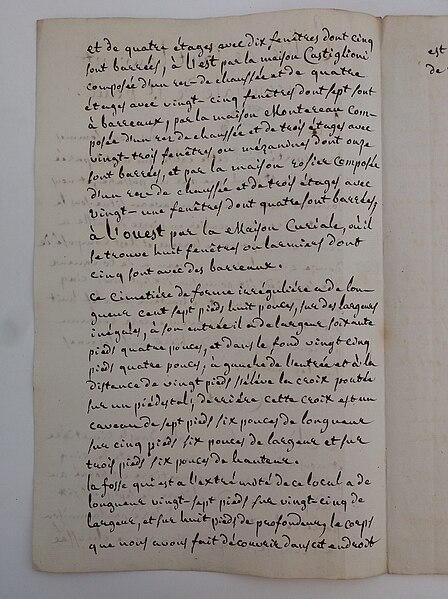 et de quatre étages avec dix fenêtres dont cinq
sont barrées, à l'est par la maison Castiglioni
composée d'un rez-de chaussée et de quatre
étages avec vingt-cinq fenêtres dont sept sont
à barreaux, par la maison Montereau com-
posée d'un rez de chaussée et de trois étages avec
vingt-trois fenêtres ou mézandres dont onze
sont barrées, et par la maison rosier composée
d'un rez-de chaussée et de trois étages avec
vingt-une fenêtres dont quatre sont barrées,
à l'ouest par la Maison Curiale, où il
se trouve huit fenêtres ou larmiers dont
cinq sont avec des barreaux.
ce Cimetière de forme irrégulière a de lon-
gueur cent sept pieds huit pouces, sur des largeurs
inégales, à son entrée il a de largeur soixante
pieds quatre pouces, et dans le fond vingt cinq
pieds quatre pouces, à gauche de l'entrée et à la
distance de vingt pieds s'élève la croix
sur un piédestal; derrière cette croix est un
caveau de sept pieds six pouces de longueur
sur cinq pieds six pouces de largeur et sur
trois pieds six pouces de hauteur.
la fosse qui est à l'extrémité de ce local a de
longueur vingt-sept pieds sur vingt-cinq de
largeur, et sur huit pieds de profondeur, le corps
que nous avons fait découvrir dans cet endroit
est
de